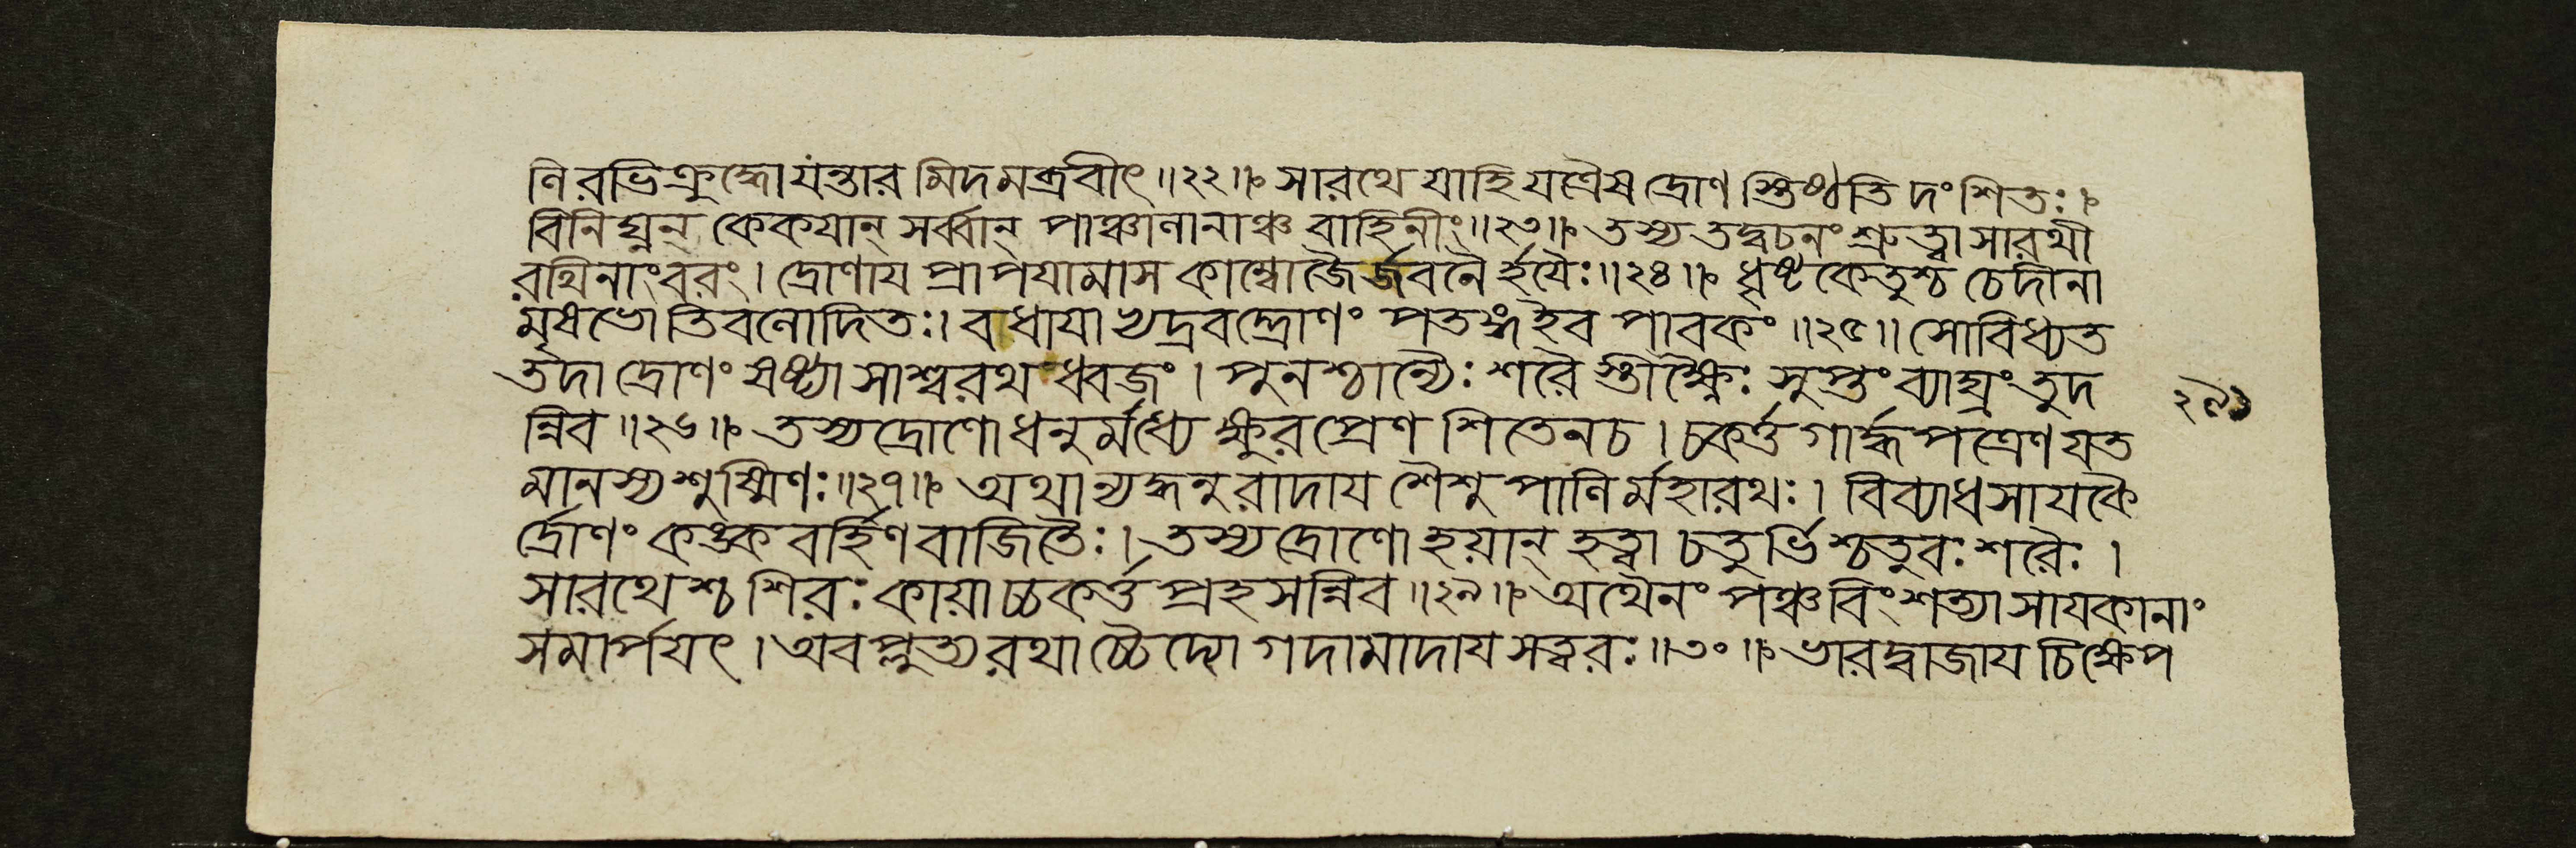 ণিরভিক্রুদ্ধোযন্তারমিদমব্রবীৎ॥২২॥ সারথে যাহি যত্রৈষ দ্রোণস্তিষ্ঠতি দংশিতঃ।
বিনিঘ্নন্ কেকযান্ সর্ব্বান্ পাঞ্চালানাঞ্চ বাহিনীং॥২৩॥ তস্য তদ্বচনং শ্রুত্বা সারথী
রথিনাংবরং। দ্রোণায প্রাপযামাস কাম্বোজৈর্জবনৈর্হযৈঃ॥২৪॥ ধৃষ্টকেতুশ্চ চেদীনা
মৃষভোতিবলোদিতঃ। বধাযাভ্যদ্রবদ্দ্রোণং পতঙ্গইব পাবকং॥২৫॥ সোবিধ্যত
তদা দ্রোণং ষষ্ট্যা সাশ্বরথধ্বজং। পুনশ্চান্যৈঃ শরৈস্তীক্ষ্ণৈঃ সুপ্তং ব্যাঘ্রং তুদ
ন্নিব॥২৬॥ তস্যদ্রোণো ধনুর্মধ্যে ক্ষুরপ্রেণ শিতেনচ। চকর্ত্ত গার্দ্ধপত্রেণ যত
মানস্য শুষ্মিণঃ॥২৭॥ অথান্যদ্ধনুরাদায শৈশুপালির্মহারথঃ। বিব্যাধ সাযকৈ
র্দ্রোণং কঙ্কবর্হিণবাজিতৈঃ। তস্যদ্রোণো হয়ান্ হত্বা চতুর্ভিশ্চতুরঃ শরৈঃ।
সারথেশ্চ শিরঃ কায়াচ্চকর্ত্ত প্রহসন্নিব॥২৯॥ অথৈনং পঞ্চবিংশত্যা সাযকানাং
সমার্পযৎ। অবপ্লুত্য রথাচ্চৈদ্যো গদামাদায সত্বরঃ॥৩০॥ ভারদ্বাজায চিক্ষেপ